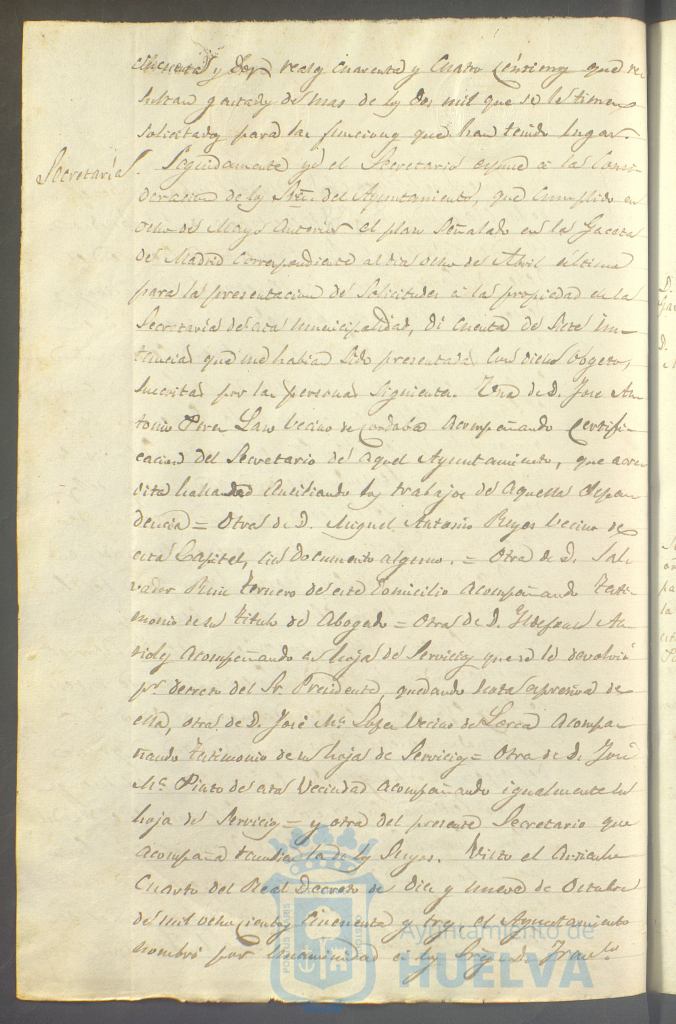 cincuenta y dos reales cuarenta y cuatro céntimos que re-
sultan gastados de mas de los dos mil que se le tienen
solicitados para las funciones que han tenido lugar.
Secretaría. Seguidamente yo el Secretario espuse a la Consi-
deracion de los Sres. del Ayuntamiento, que cumplido en
ocho de Mayo anterior el plazo señalado en la Gaceta
de Madrid correspondiente al dia ocho de Abril ultimo
para la presentacion de solicitudes a la propiedad en la
Secretaría de esta municipalidad, di cuenta de siete ins-
tancias que me habian sido presentadas con dicho objeto,
suscritas por las personas siguientes. Una de D. Jose An-
tonio vecino de Cordoba acompañando Certifi-
cacion del Secretario de aquel Ayuntamiento, que acre-
dita hallarse auxiliando los trabajos de aquella depen-
dencia = Otra de D. Miguel Antonio Reyes vecino de
esta Capital, sin documento alguno. = Otra de D. Sal-
vador Ruiz Ternero de este domicilio acompañando testi-
monio de su titulo de Abogado = Otra de D. Ildefonso
acompañando su hoja de servicios que se le devolvió
pr. decreto del Sr. Presidente, quedando nota espresiva de
ella, otra de D. José Ma. Lopez vecino de Lorca acompa-
ñando testimonio de su hoja de servicios = Otra de D. José
Ma. Pinto de esta vecindad acompañando igualmente su
hoja de servicios = y otra del presente Secretario que
acompaña tambien la de los suyos. Visto el articulo
cuarto del Real Decreto de diez y nueve de Octubre
de mil ochocientos cincuenta y tres el Ayuntamiento
nombró por unanimidad a los Sres. D. Franco.
Ayuntamiento de
HUELVA